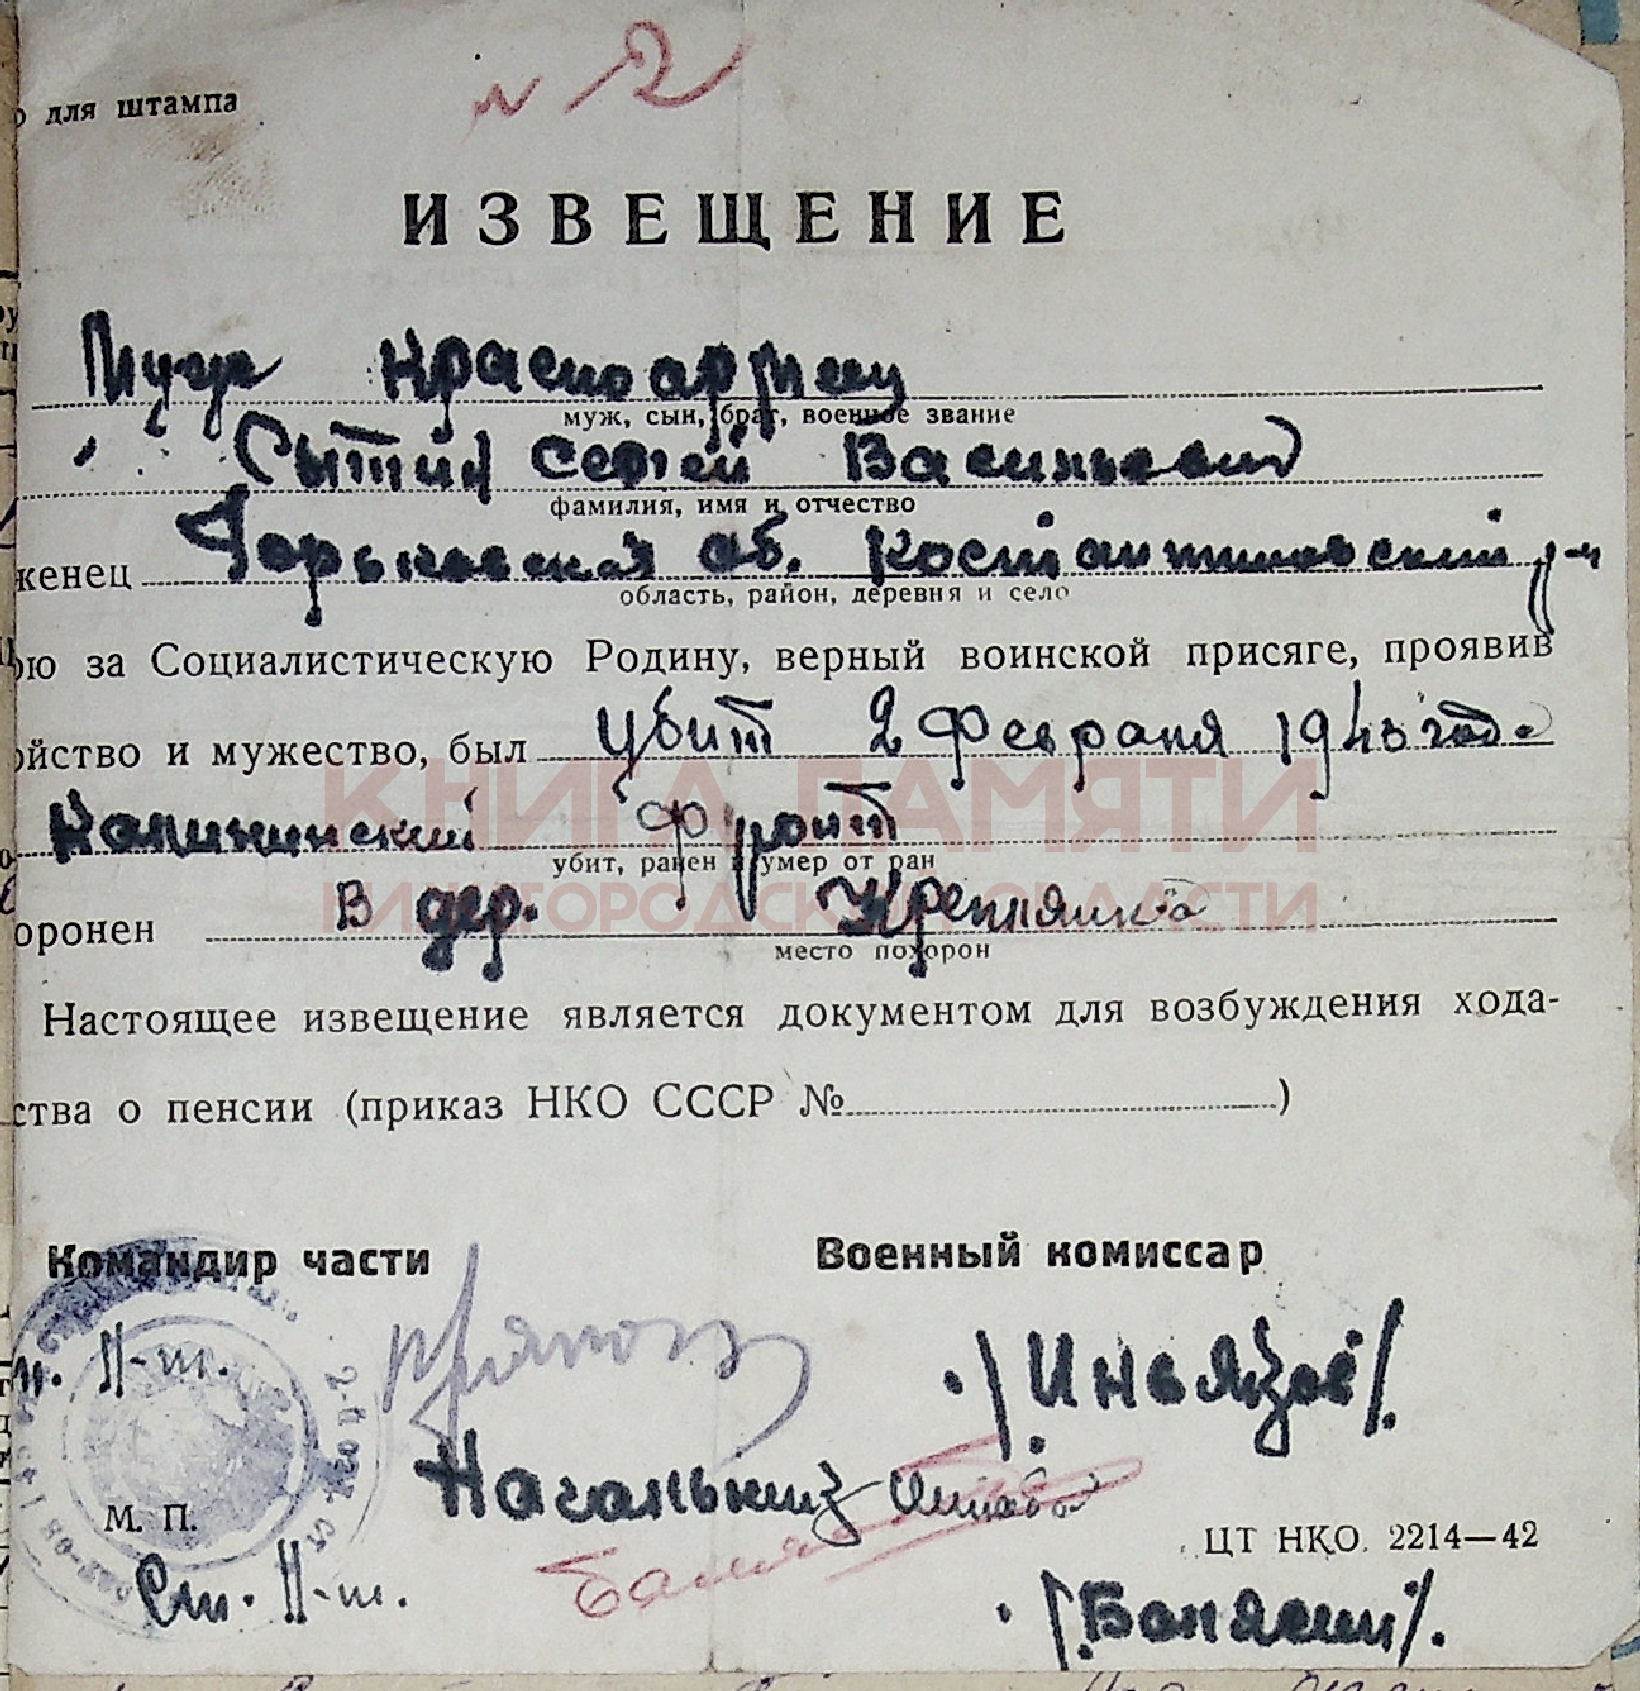 о для штампа
N 2
ИЗВЕЩЕНИЕ
Муж красноармеец
муж, сын, брат, военное звание
Сытин Сергей Васильевич
фамилия, имя и отчество
женец Горьковская об. Костантиновский р-н
область, район, деревня и село
ою за Социалистическую Родину, верный воинской присяге, проявив
ойство и мужество, был убит 2 февраля 1943 год.
КНИГА ПАМЯТИ
Калининский фронт
убит, ранен и умер от ран
НИЖЕГОРОДСКОЙ ОБЛАСТИ
оронен В дер. Креплянка
место похорон
Настоящее извещение является документом для возбуждения хода-
ства о пенсии (приказ НКО СССР №)
Командир части Военный комиссар
п. II-т. /Иньязов/.
Начальник штаба
М. П.
ЦТ НКО. 2214—42
Ст. II-т. /Банялин/.